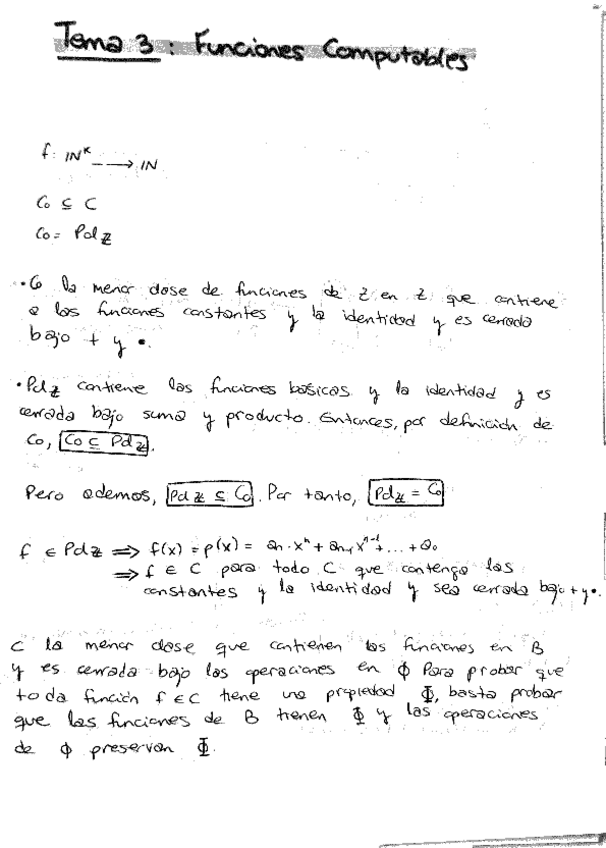 Tema 3: Funciones Computables
f: ℕᵏ ---→ ℕ
C₀ ⊆ C
C₀ = Pol ℤ
• C₀ la menor clase de funciones de ℤ en ℤ que contiene
a las funciones constantes y la identidad y es cerrada
bajo + y •.
• Pol ℤ contiene las funciones básicas y la identidad y es
cerrada bajo suma y producto. Entonces, por definición de
C₀, C₀ ⊆ Pol ℤ.
Pero ademas, Pol ℤ ⊆ C₀. Por tanto, Pol ℤ = C₀
f ∈ Pol ℤ ⟹ f(x) = p(x) = aₙ·xⁿ + aₙ₋₁xⁿ⁻¹ + ... + a₀
⟹ f ∈ C para todo C que contenga las
constantes y la identidad y sea cerrada bajo + y •.
C la menor clase que contienen las funciones en B
y es cerrada bajo las operaciones en ϕ Para probar que
toda función f ∈ C tiene una propiedad Φ, basta probar
que las funciones de B tienen Φ y las operaciones
de ϕ preservan Φ.